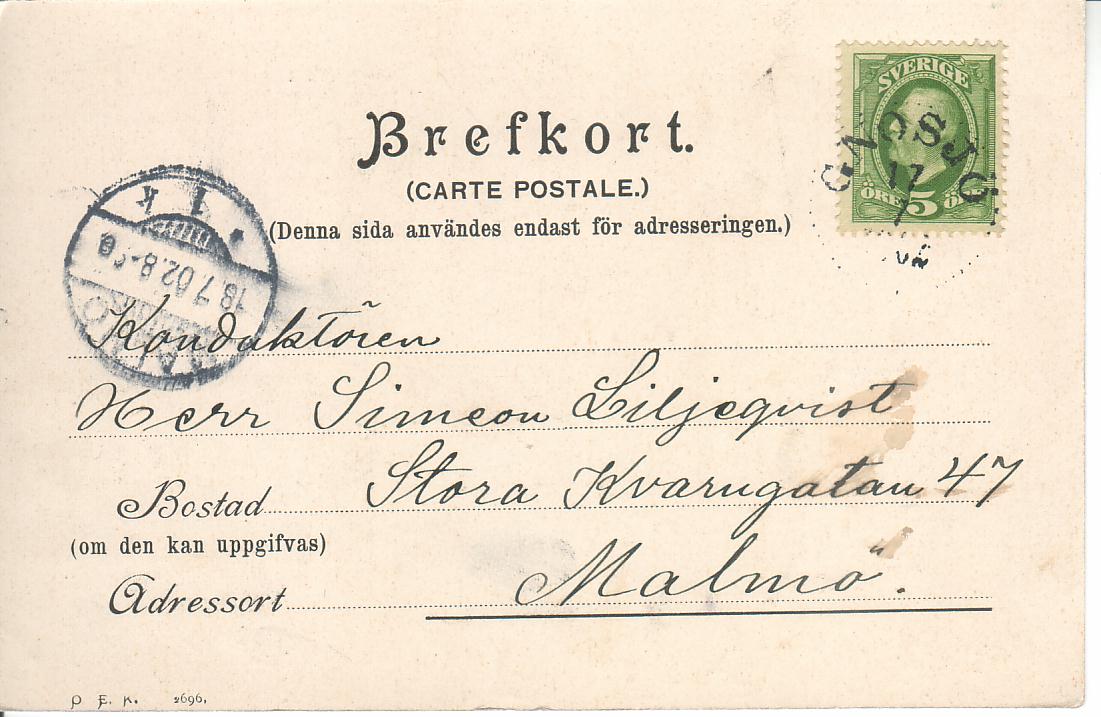 SVERIGE
ÖRE 5 ÖRE
GNOSJÖ
17
7
02
Brefkort.
(CARTE POSTALE.)
(Denna sida användes endast för adresseringen.)
MALMÖ
18.7.02.8-
1 k
Konduktören
Herr Simeon Liljeqvist
Bostad Stora Kvarngatan 47
(om den kan uppgifvas)
Adressort Malmö.
P. E. K. 2696.